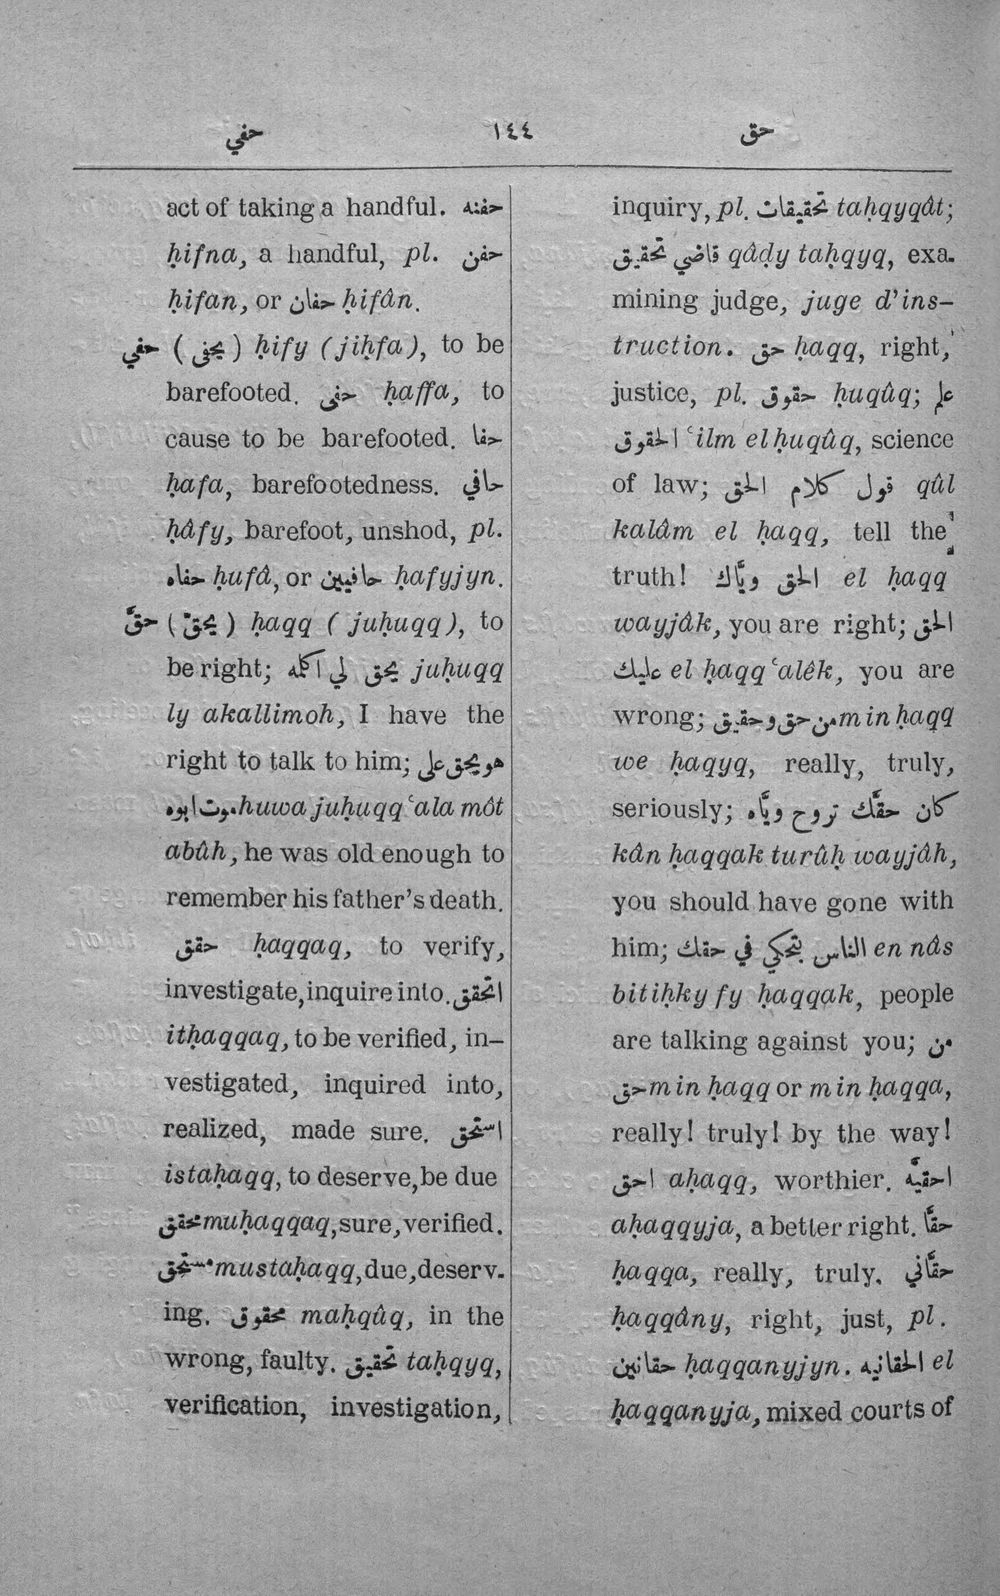 حفي ١٤٤ حق
act of taking a handful. حفنه
ḥifna, a handful, pl. حفن
ḥifan, or حفان ḥifân.
حفي (يحفى) ḥify (jiḥfa), to be
barefooted. حفى ḥaffa, to
cause to be barefooted. حفا
ḥafa, barefootedness. حافي
ḥâfy, barefoot, unshod, pl.
حفاه ḥufâ, or حافيين ḥafyjyn.
حقّ (يحقّ) ḥaqq (juḥuqq), to
be right; يحق لي اكلمه juḥuqq
ly akallimoh, I have the
right to talk to him; هو يحق على
موت ابوه huwa juḥuqq ʿala môt
abûh, he was old enough to
remember his father's death.
حقق ḥaqqaq, to verify,
investigate, inquire into. اتحقق
itḥaqqaq, to be verified, in–
vestigated, inquired into,
realized, made sure. استحق
istaḥaqq, to deserve, be due
محقق muḥaqqaq, sure, verified.
مستحق mustaḥaqq, due, deserv-
ing. محقوق maḥqûq, in the
wrong, faulty. تحقيق taḥqyq,
verification, investigation,
inquiry, pl. تحقيقات taḥqyqât;
قاضي تحقيق qâḍy taḥqyq, exa-
mining judge, juge d'ins–
truction. حق ḥaqq, right,
justice, pl. حقوق ḥuqûq; علم
الحقوق ʿilm el ḥuqûq, science
of law; قول كلام الحق qûl
kalâm el ḥaqq, tell the
truth! الحق ويّاك el ḥaqq
wayjâk, you are right; الحق
عليك el ḥaqq ʿalêk, you are
wrong; من حق وحقيق min ḥaqq
we ḥaqyq, really, truly,
seriously; كان حقّك تروح ويّاه
kân ḥaqqak turûḥ wayjâh,
you should have gone with
him; الناس بتحكي في حقك en nâs
bitiḥky fy ḥaqqak, people
are talking against you; من
حق min ḥaqq or min ḥaqqa,
really! truly! by the way!
احق aḥaqq, worthier. احقيّه
aḥaqqyja, a better right. حقّا
ḥaqqa, really, truly. حقّاني
ḥaqqâny, right, just, pl.
حقانين ḥaqqanyjyn. الحقانيه el
ḥaqqanyja, mixed courts of